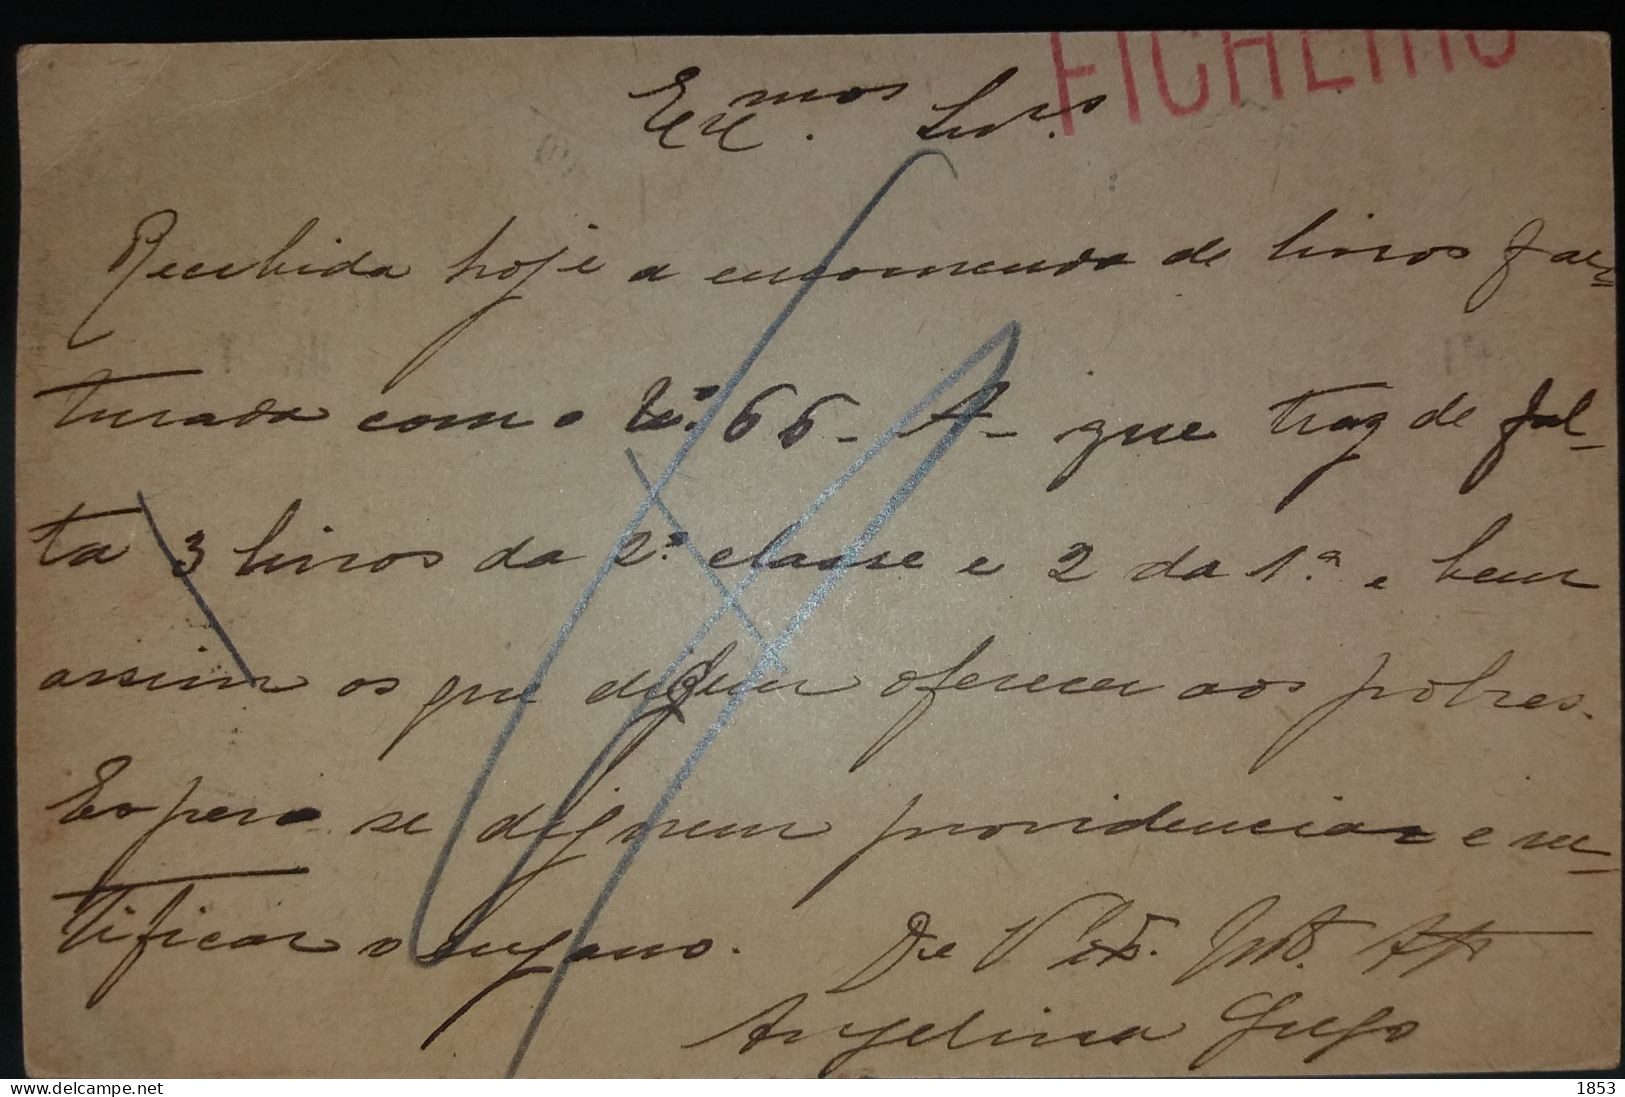 FICHEIRO
Exmos. Snrs.
Recebida hoje a encomenda de livros fac-
turada com o nº 66-A- que traz de fal-
ta 3 livros da 2ª classe e 2 da 1ª e bem
assim os que dizem oferecer aos pobres.
Espero se dignem providenciar e rec-
tificar o engano. De V. Exas. Mto. Atta
Angelina
delcampe.net
1853